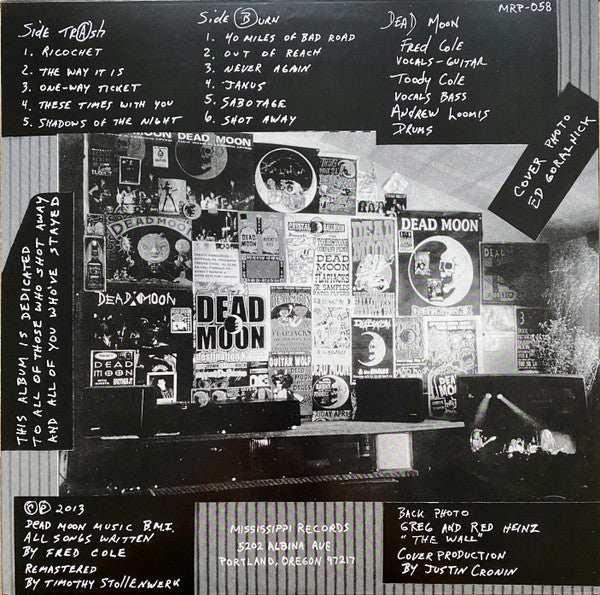 Side TRⒶSH
1. RICOCHET
2. THE WAY IT IS
3. ONE-WAY TICKET
4. THESE TIMES WITH YOU
5. SHADOWS OF THE NIGHT
Side ⒷURN
1. 40 MILES OF BAD ROAD
2. OUT OF REACH
3. NEVER AGAIN
4. JANUS
5. SABOTAGE
6. SHOT AWAY
DEAD MOON
FRED COLE
VOCALS-GUITAR
TOODY COLE
VOCALS BASS
ANDREW LOOMIS
DRUMS
MRP-058
COVER PHOTO
ED GORALNICK
THIS ALBUM IS DEDICATED
TO ALL OF THOSE WHO SHOT AWAY
AND ALL OF YOU WHO'VE STAYED
DEAD MOON
DEAD MOON
DEAD MOON
DEAD MOON
DEAD
MOON
DEAD MOON
DEAD
MOON
DEAD
MOON
FLAPJACKS
JR. SAMPLES
DEAD
MOON
GUITAR WOLF
©℗ 2013
DEAD MOON MUSIC B.M.I.
ALL SONGS WRITTEN
BY FRED COLE
REMASTERED
BY TIMOTHY STOLLENWERK
MISSISSIPPI RECORDS
5202 ALBINA AVE
PORTLAND, OREGON 97217
BACK PHOTO
GREG AND RED HEINZ
"THE WALL"
COVER PRODUCTION
BY JUSTIN CRONIN